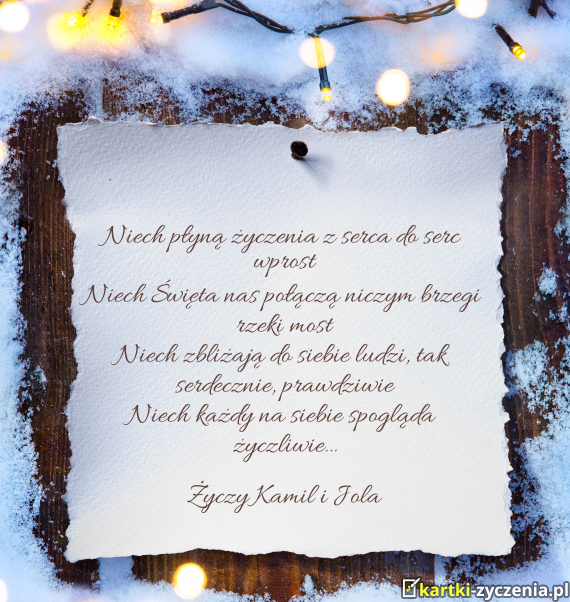 Niech płyną życzenia z serca do serc
wprost
Niech Święta nas połączą niczym brzegi
rzeki most
Niech zbliżają do siebie ludzi, tak
serdecznie, prawdziwie
Niech każdy na siebie spogląda
życzliwie...
Życzy Kamil i Jola
kartki-zyczenia.pl